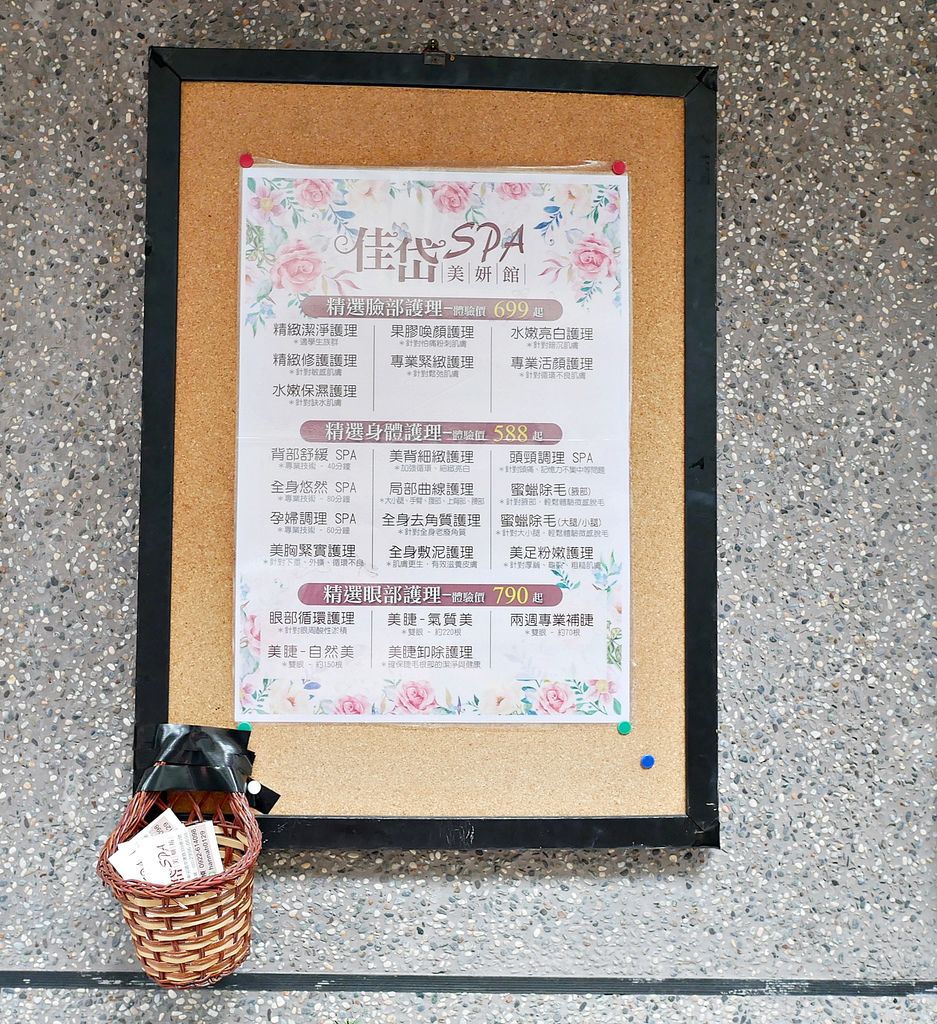 佳岱 SPA
美妍館
精選臉部護理-體驗價 699 起
精緻潔淨護理 果膠喚顏護理 水嫩亮白護理
*適學生族群 *針對怕痛粉刺肌膚 *針對暗沉肌膚
精緻修護護理 專業緊緻護理 專業活顏護理
*針對敏感肌膚 *針對鬆弛肌膚 *針對循環不良肌膚
水嫩保濕護理
*針對缺水肌膚
精選身體護理-體驗價 588 起
背部舒緩 SPA 美背細緻護理 頭頸調理 SPA
*專業技術 - 40分鐘 *加強循環、細緻亮白 *針對頭痛、記憶力不集中等問題
全身悠然 SPA 局部曲線護理 蜜蠟除毛(腋部)
*專業技術 - 80分鐘 *大小腿、手臂、腹部、上背部、腰部 *針對腋部、輕鬆體驗微感脫毛
孕婦調理 SPA 全身去角質護理 蜜蠟除毛(大腿/小腿)
*專業技術 - 60分鐘 *針對全身老廢角質 *針對大小腿、輕鬆體驗微感脫毛
美胸緊實護理 全身敷泥護理 美足粉嫩護理
*針對下垂、外擴、循環不良 *肌膚更生，有效滋養皮膚 *針對厚繭、龜裂、粗糙肌膚
精選眼部護理-體驗價 790 起
眼部循環護理 美睫-氣質美 兩週專業補睫
*針對眼周酸性淤積 *雙眼 - 約220根 *雙眼 - 約70根
美睫-自然美 美睫卸除護理
*雙眼 - 約150根 *確保睫毛根部的潔淨與健康
SPA